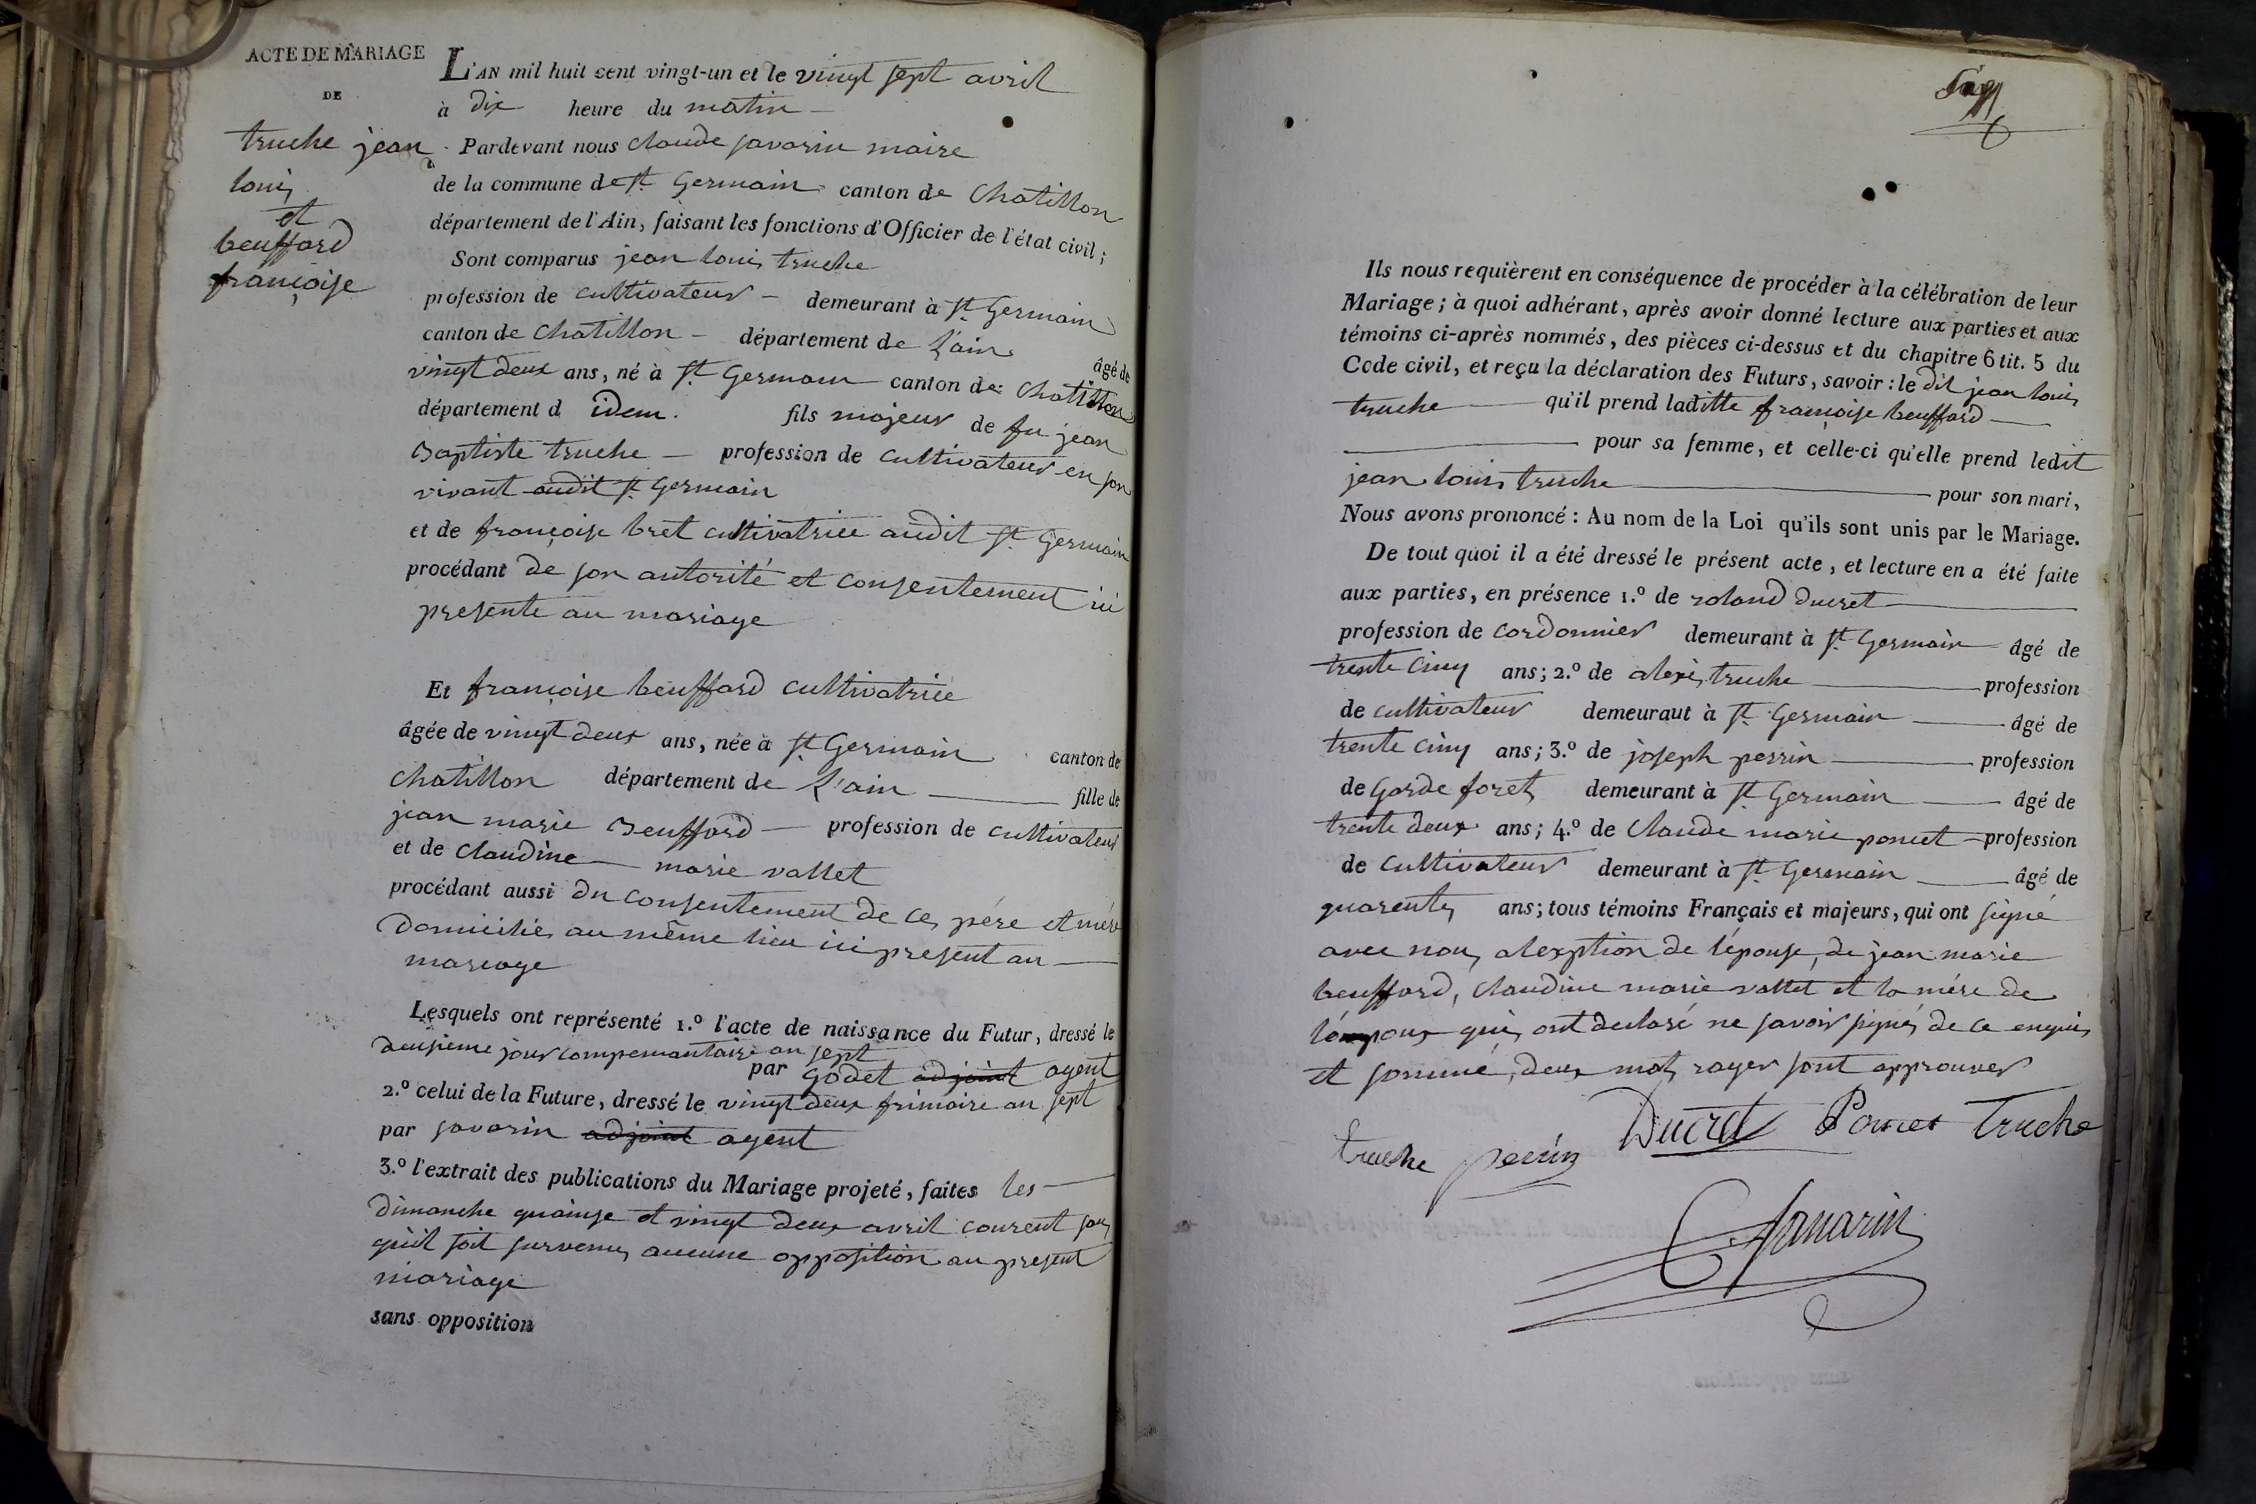 ACTE DE MARIAGE
DE
truche jean
louis
et
beuffard
françoise
L'AN mil huit cent vingt-un et le vingt sept avril
à dix heure du matin
Pardevant nous claude savarin maire
de la commune de St Germain canton de Chatillon
département de l'Ain, faisant les fonctions d'Officier de l'état civil;
Sont comparus jean louis truche
profession de cultivateur demeurant à St Germain
canton de Chatillon département de L'ain âgé de
vingt deux ans, né à St Germain canton de Chatillon
département d idem. fils majeur de fu jean
Baptiste truche profession de cultivateur en son
vivant audit St Germain
et de françoise bret cultivatrice audit St Germain
procédant de son autorité et consentement ici
presente au mariage
Et françoise beuffard cultivatrice
âgée de vingt deux ans, née à St Germain canton de
chatillon département de L'ain fille de
jean marie Beuffard profession de cultivateur
et de claudine marie vallet
procédant aussi du consentement de ces pére et mére
domiciliés au même lieu ici present au
mariage
Lesquels ont représenté 1.º l'acte de naissance du Futur, dressé le
deusieme jour compemantaire an sept
par godet adjoint agent
2.º celui de la Future, dressé le vingt deux frimaire an sept
par savarin adjoint agent
3.º l'extrait des publications du Mariage projeté, faites les
dimanche quainse et vingt deux avril courent sans
qu'il soit survenus aucune opposition au present
mariage
sans opposition
Ils nous requièrent en conséquence de procéder à la célébration de leur
Mariage; à quoi adhérant, après avoir donné lecture aux parties et aux
témoins ci-après nommés, des pièces ci-dessus et du chapitre 6 tit. 5 du
Code civil, et reçu la déclaration des Futurs, savoir: le dit jean louis
truche qu'il prend laditte françoise beuffard
pour sa femme, et celle-ci qu'elle prend ledit
jean louis truche pour son mari,
Nous avons prononcé: Au nom de la Loi qu'ils sont unis par le Mariage.
De tout quoi il a été dressé le présent acte, et lecture en a été faite
aux parties, en présence 1.º de roland ducret
profession de cordonnier demeurant à St Germain âgé de
trente cinq ans; 2.º de alexis truche profession
de cultivateur demeuraut à St Germain âgé de
trente cinq ans; 3.º de joseph perrin profession
de garde forets demeurant à St Germain âgé de
trente deux ans; 4.º de Claude marie poncet profession
de cultivateur demeurant à St Germain âgé de
quarentes ans; tous témoins Français et majeurs, qui ont signé
avec nous alexption de l'épouse, de jean marie
beuffard, claudine marie vallet et la mére de
l'époux qui ont declaré ne savoir signer de ce enquis
et sommé, deux mots rayer sont approuver
Ducret Poncet Truche
truche perrin
C Savarin